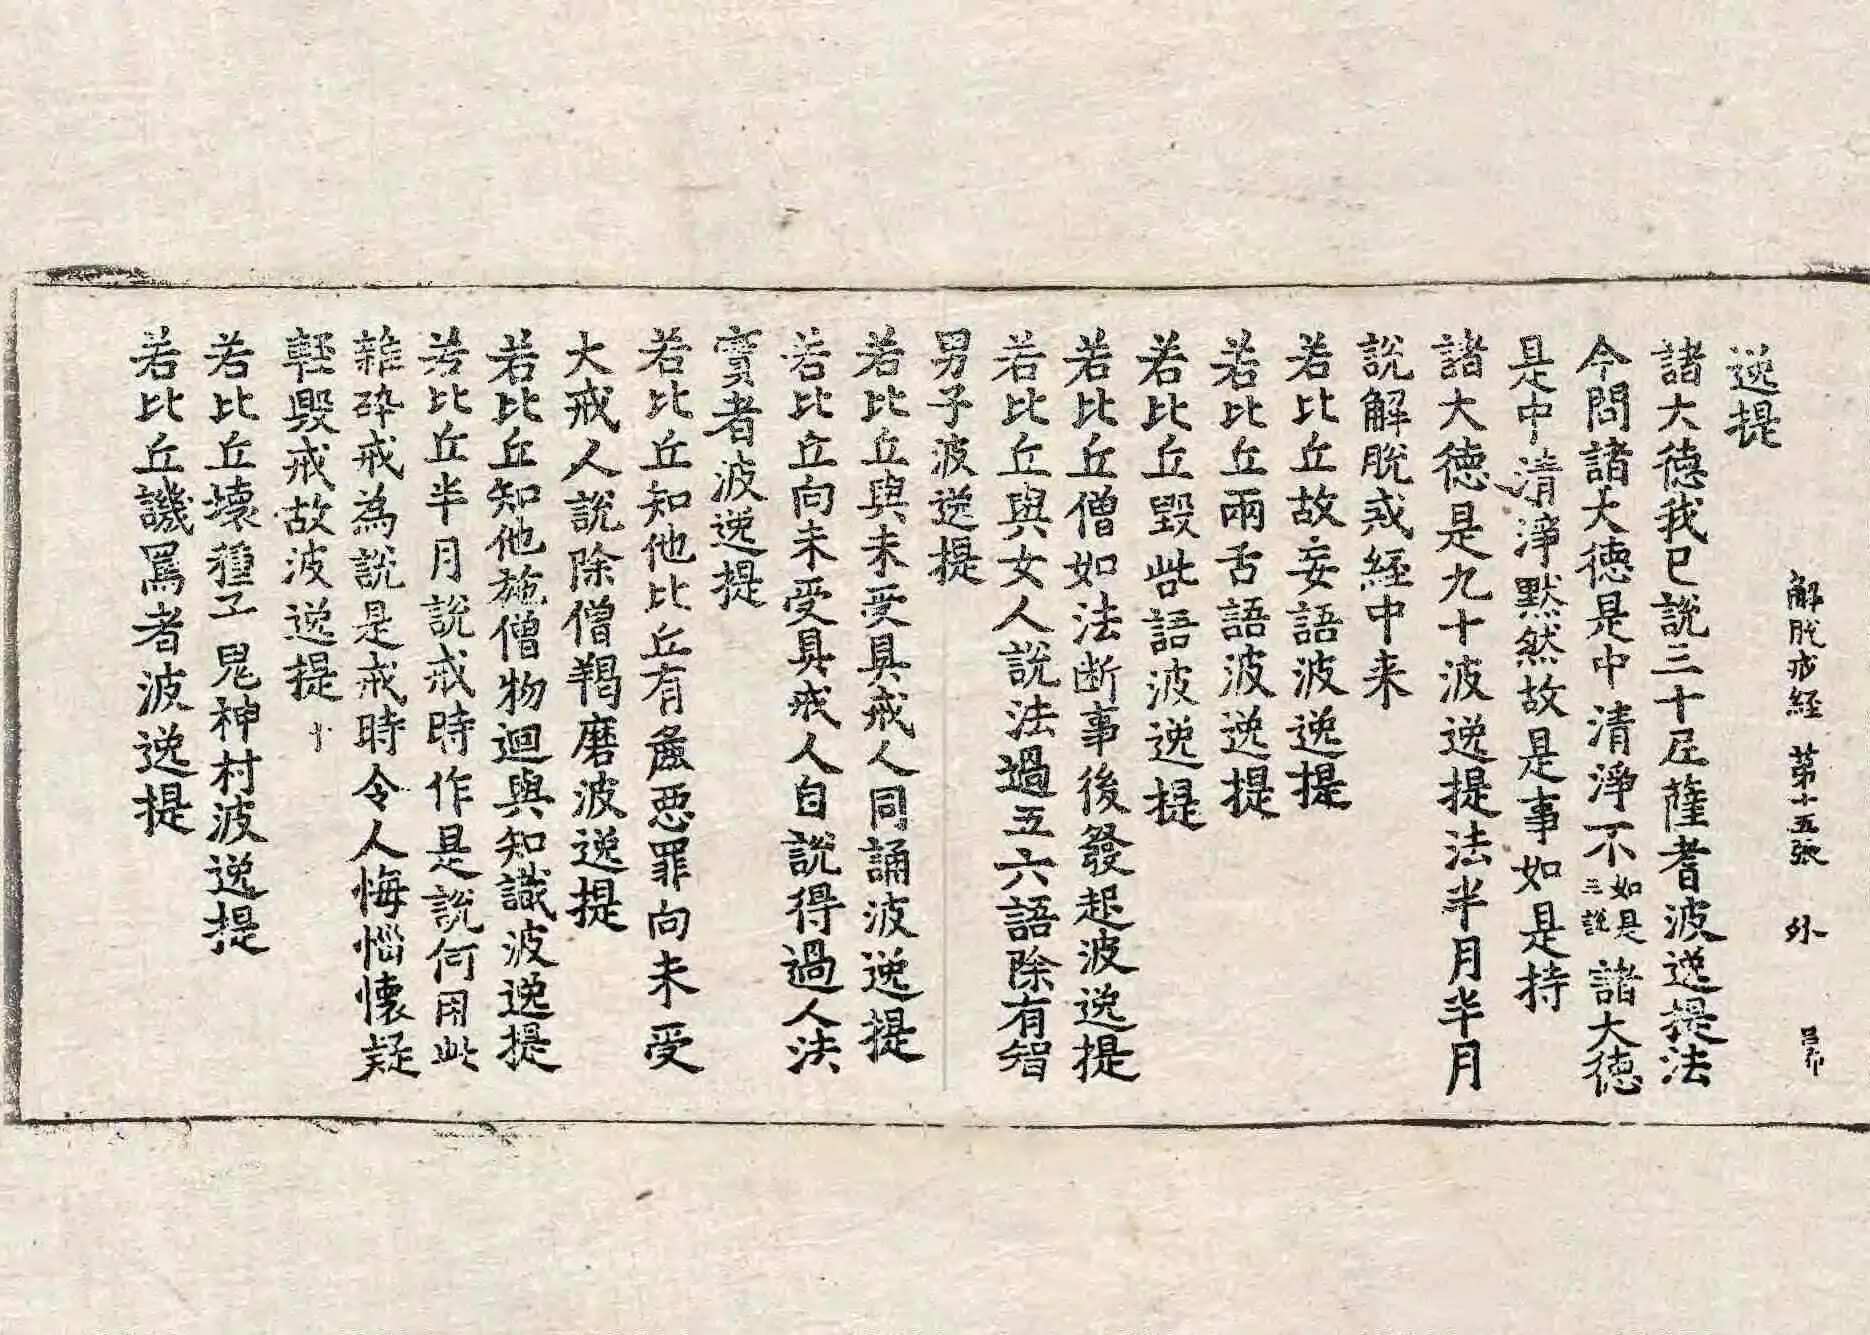 解脫戒經 第十五張 外 吕布
逸提
諸大德我已說三十尼薩耆波逸提法
今問諸大德是中清淨不如是三說諸大德
是中清淨默然故是事如是持
諸大德是九十波逸提法半月半月
說解脫戒經中来
若比丘故妄語波逸提
若比丘兩舌語波逸提
若比丘毀呰語波逸提
若比丘僧如法断事後發起波逸提
若比丘與女人說法過五六語除有智
男子波逸提
若比丘與未受具戒人同誦波逸提
若比丘向未受具戒人自說得過人法
實者波逸提
若比丘知他比丘有麁惡罪向未受
大戒人說除僧羯磨波逸提
若比丘知他施僧物迴與知識波逸提
若比丘半月說戒時作是說何用此
雜碎戒為說是戒時令人悔惱懷疑
輕毀戒故波逸提 十
若比丘壞種子鬼神村波逸提
若比丘譏罵者波逸提